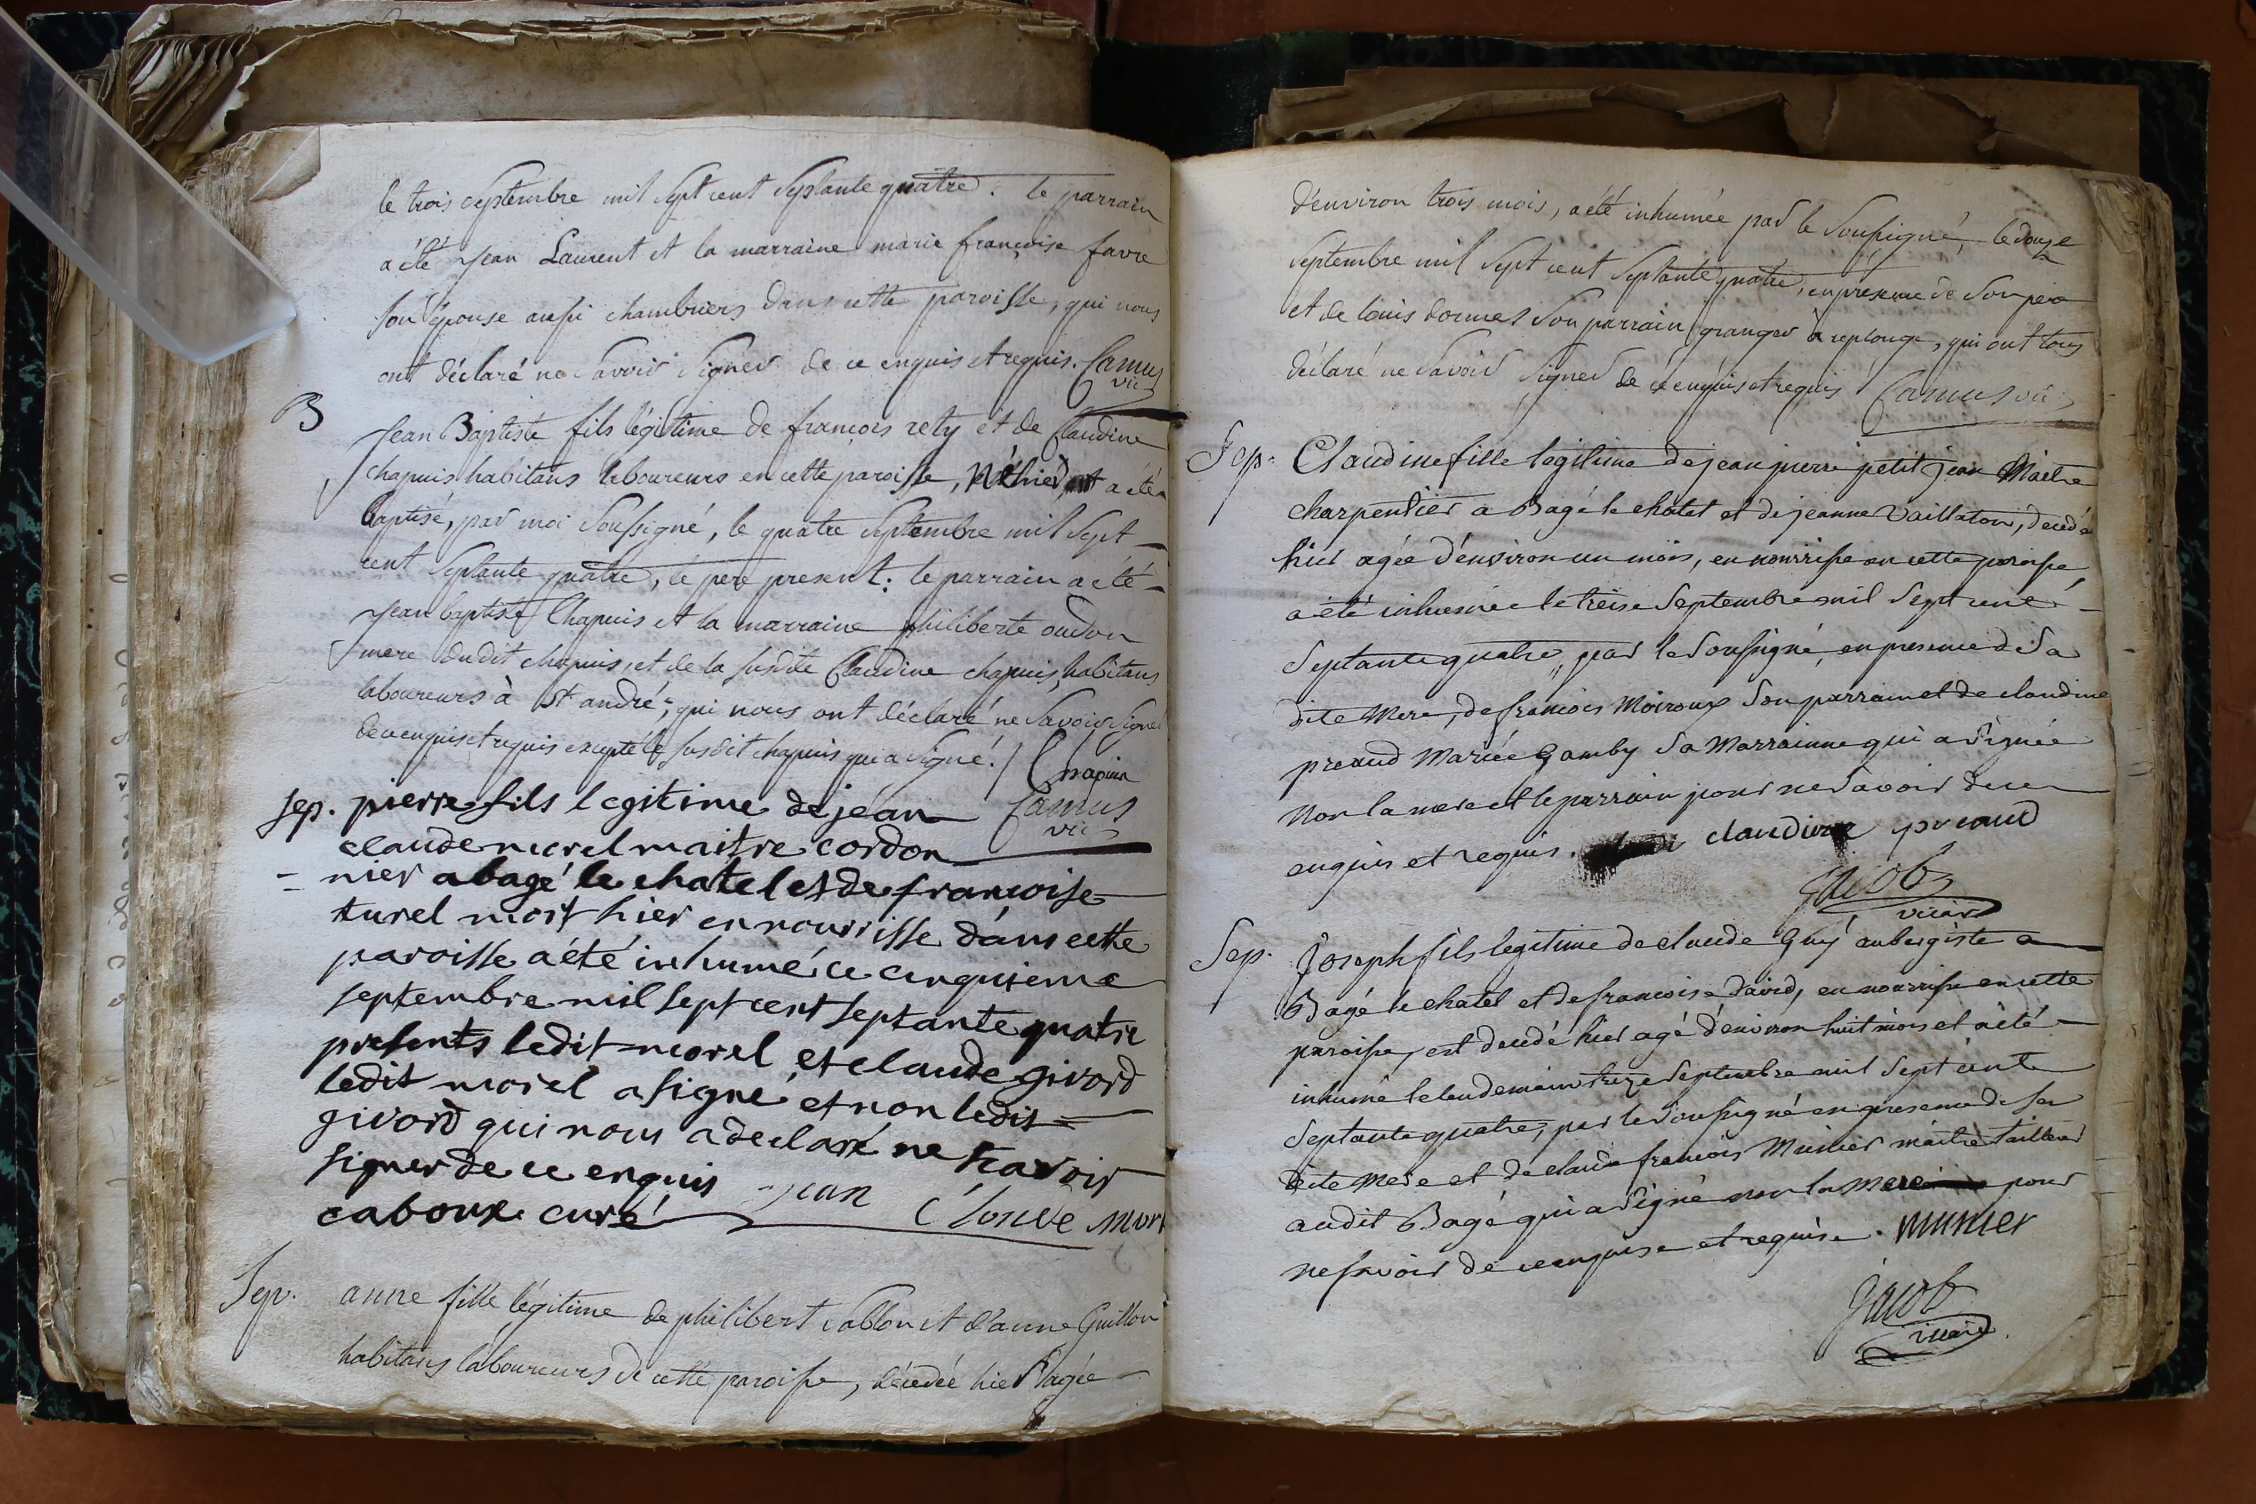 le trois septembre mil sept cent septante quatre. le parrain
a été jean Laurent et la marraine marie françoise favre
son épouse aussi chambriers dans cette paroisse, qui nous
ont déclaré ne savoir signer de ce enquis et requis. Camus
vic
B
jean Baptiste fils légitime de françois rety et de Claudine
chapuis habitans laboureurs en cette paroisse, né hier, a été
baptisé, par moi soussigné, le quatre septembre mil sept
cent septante quatre, le pere present. le parrain a été
jean baptiste Chapuis et la marraine philiberte oudon
mere dudit chapuis, et de la susdite Claudine chapuis, habitans
laboureurs à st andré, qui nous ont déclaré ne savoir signer
de ce enquis et requis excepté le susdit chapuis qui a signé. Chapuis
Camus
vic
sep. pierre fils legitime de jean
claude morel maitre cordon
- nier a bagé le chatel et de francoise
turel mort hier en nourrisse dans cette
paroisse a été inhumé ce cinquieme
septembre mil sept cent septante quatre
presents ledit morel et claude givord
ledit morel a signé et non ledit
givord qui nous a declaré ne scavoir
signer de ce enquis
caboux curé jean Cloude Mor
Sep. anne fille légitime de philibert sablon et d'anne Guillon
habitans laboureurs de cette paroisse, décédée hier agée
d'environ trois mois, a été inhumée par le soussigné, le douze
septembre mil sept cent septante quatre, en présence de son pere
et de louis dormes son parrain granger à replonge, qui ont tous
déclaré ne savoir signer de ce enquis et requis Camus vic
Sep. Claudine fille legitime de jean pierre petit jean Maitre
charpentier a Bagé le chatel et de jeanne Vaillaton, decedée
hier agée d'environ un mois, en nourrisse en cette paroisse,
a été inhumée le treise Septembre mil Sept cent
Septante quatre, par le Soussigné, en presence de Sa
dite Mere, de francois Moiroux Son parrain et de claudine
preaud Mariée Gamby Sa Marrainne qui a Signée
Non la mere et le parrain pour ne Savoir de ce
enquis et requis. claudine preaud
jacob
vicaire
Sep. joseph fils legitime de claude Guy aubergiste a
Bagé le chatel et de francoise David, en nourrisse en cette
paroisse, est decedé hier agé d'environ huit mois et a été
inhumé le lendemain treize Septembre mil Sept cent
Septante quatre, par le soussigné en presence de sa
dite Mere et de claude francois Munier maitre tailleur
audit Bagé qui a Signé non la mere pour
ne savoir de ce enquise et requise. munier
jacob
vicaire